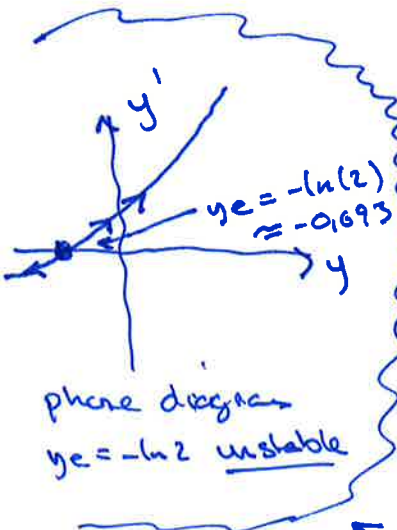 y'
ye = -ln(2)
≈ -0,693
y
phase diagram
ye = -ln 2 unstable